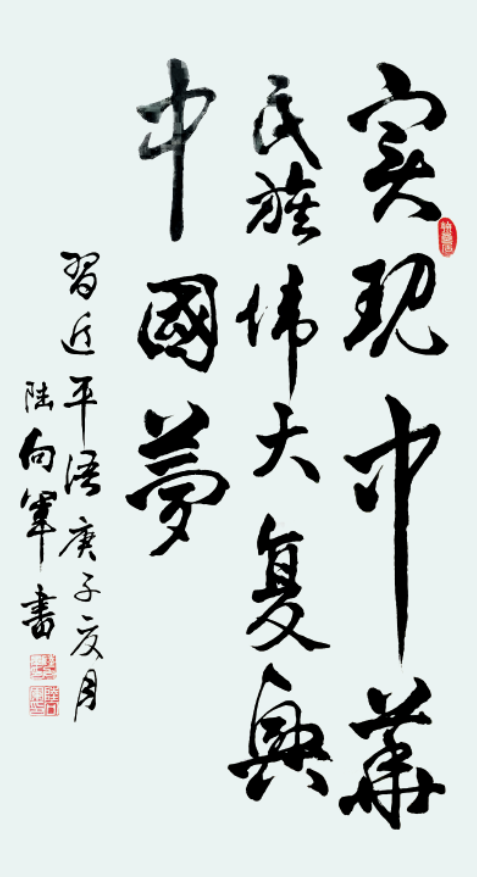 实现中華
民族伟大复興
中國夢
習近平语庚子夏月
陆向軍書